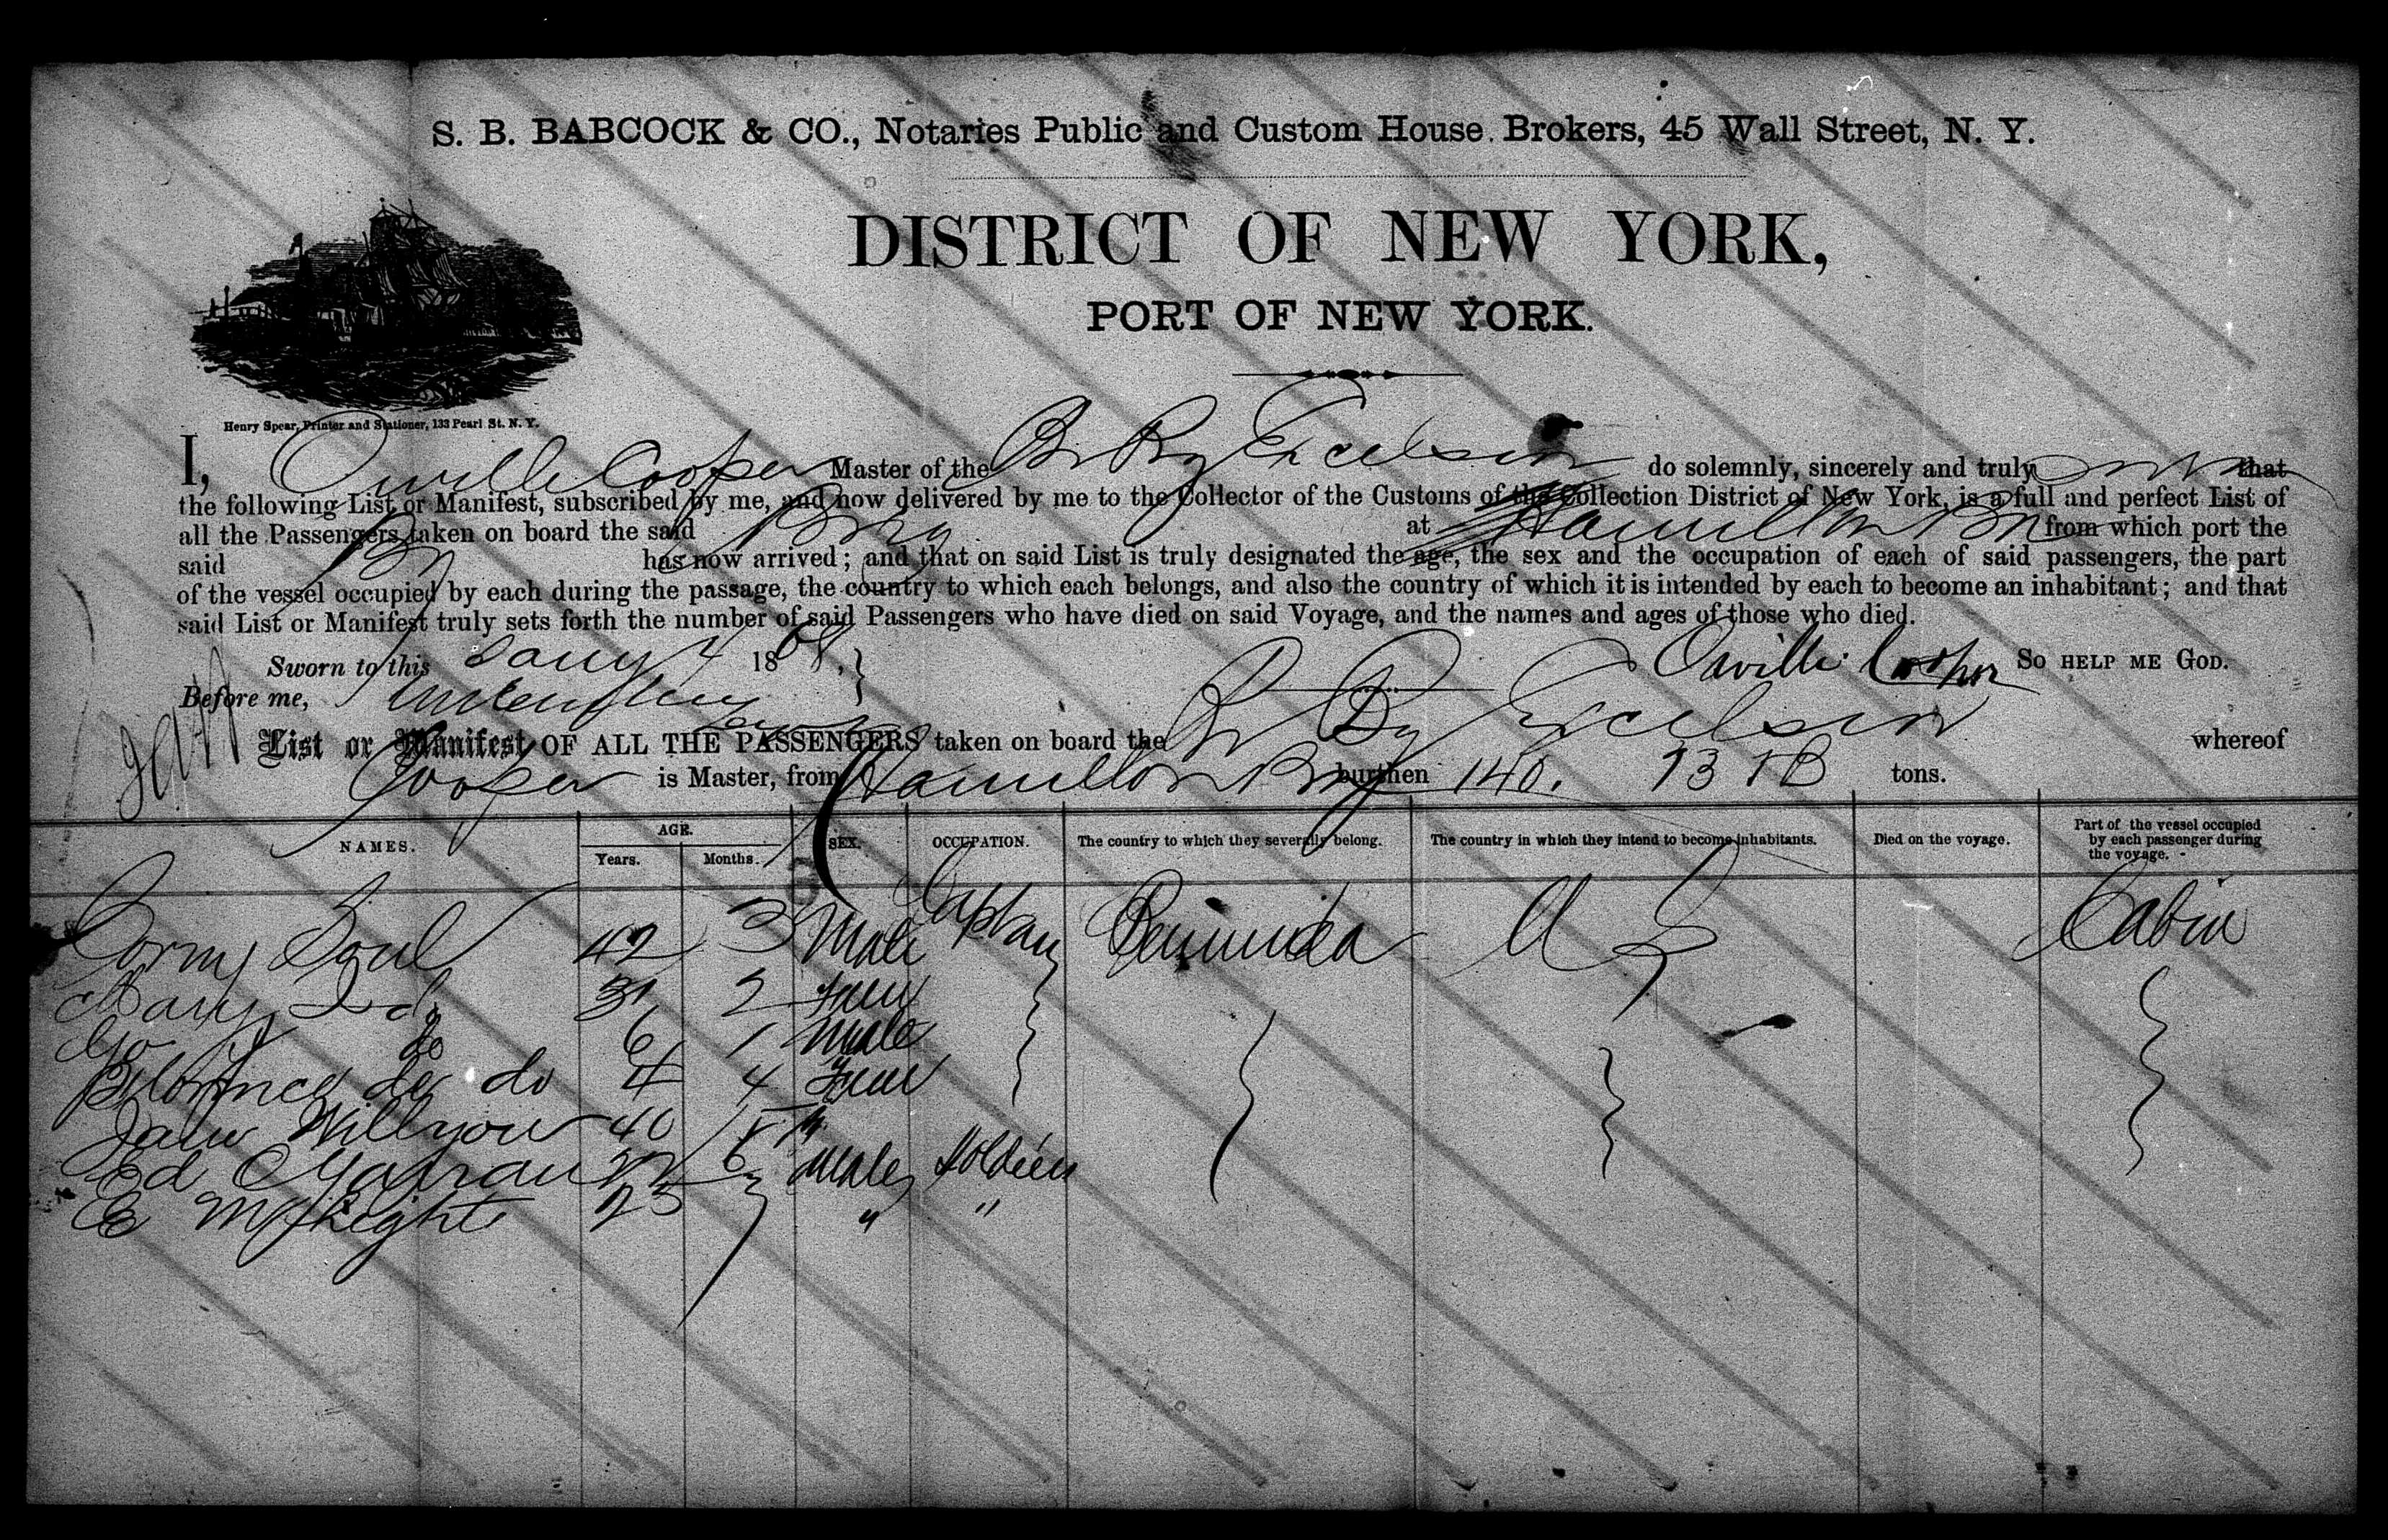 S. B. BABCOCK & CO., Notaries Public and Custom House Brokers, 45 Wall Street, N. Y.
DISTRICT OF NEW YORK,
PORT OF NEW YORK.
Henry Spear, Printer and Stationer, 133 Pearl St. N. Y.
I, Orville Cooper Master of the Br Brg Excelsior do solemnly, sincerely and truly that
the following List or Manifest, subscribed by me, and now delivered by me to the Collector of the Customs of the Collection District of New York, is a full and perfect List of
all the Passengers taken on board the said Brig at Hamilton Bm from which port the
said Brg has now arrived; and that on said List is truly designated the age, the sex and the occupation of each of said passengers, the part
of the vessel occupied by each during the passage, the country to which each belongs, and also the country of which it is intended by each to become an inhabitant; and that
said List or Manifest truly sets forth the number of said Passengers who have died on said Voyage, and the names and ages of those who died.
Sworn to this Jany 4 1868. Orville Cooper SO HELP ME GOD.
Before me,
List or Manifest OF ALL THE PASSENGERS taken on board the Br Bg Excelsior whereof
Cooper is Master, from Hamilton burthen 140. tons.
NAMES. AGE. Years. Months. SEX. OCCUPATION. The country to which they severally belong. The country in which they intend to become inhabitants. Died on the voyage. Part of the vessel occupied by each passenger during the voyage.
42 3 Male Captain Bermuda U S Cabin
Mary 31 2 Fem
Geo do 6 1 Male
Florence do do 4 4 Fem
Jane 40
Ed 22 6 Male Soldier
E McKeight 23 " "